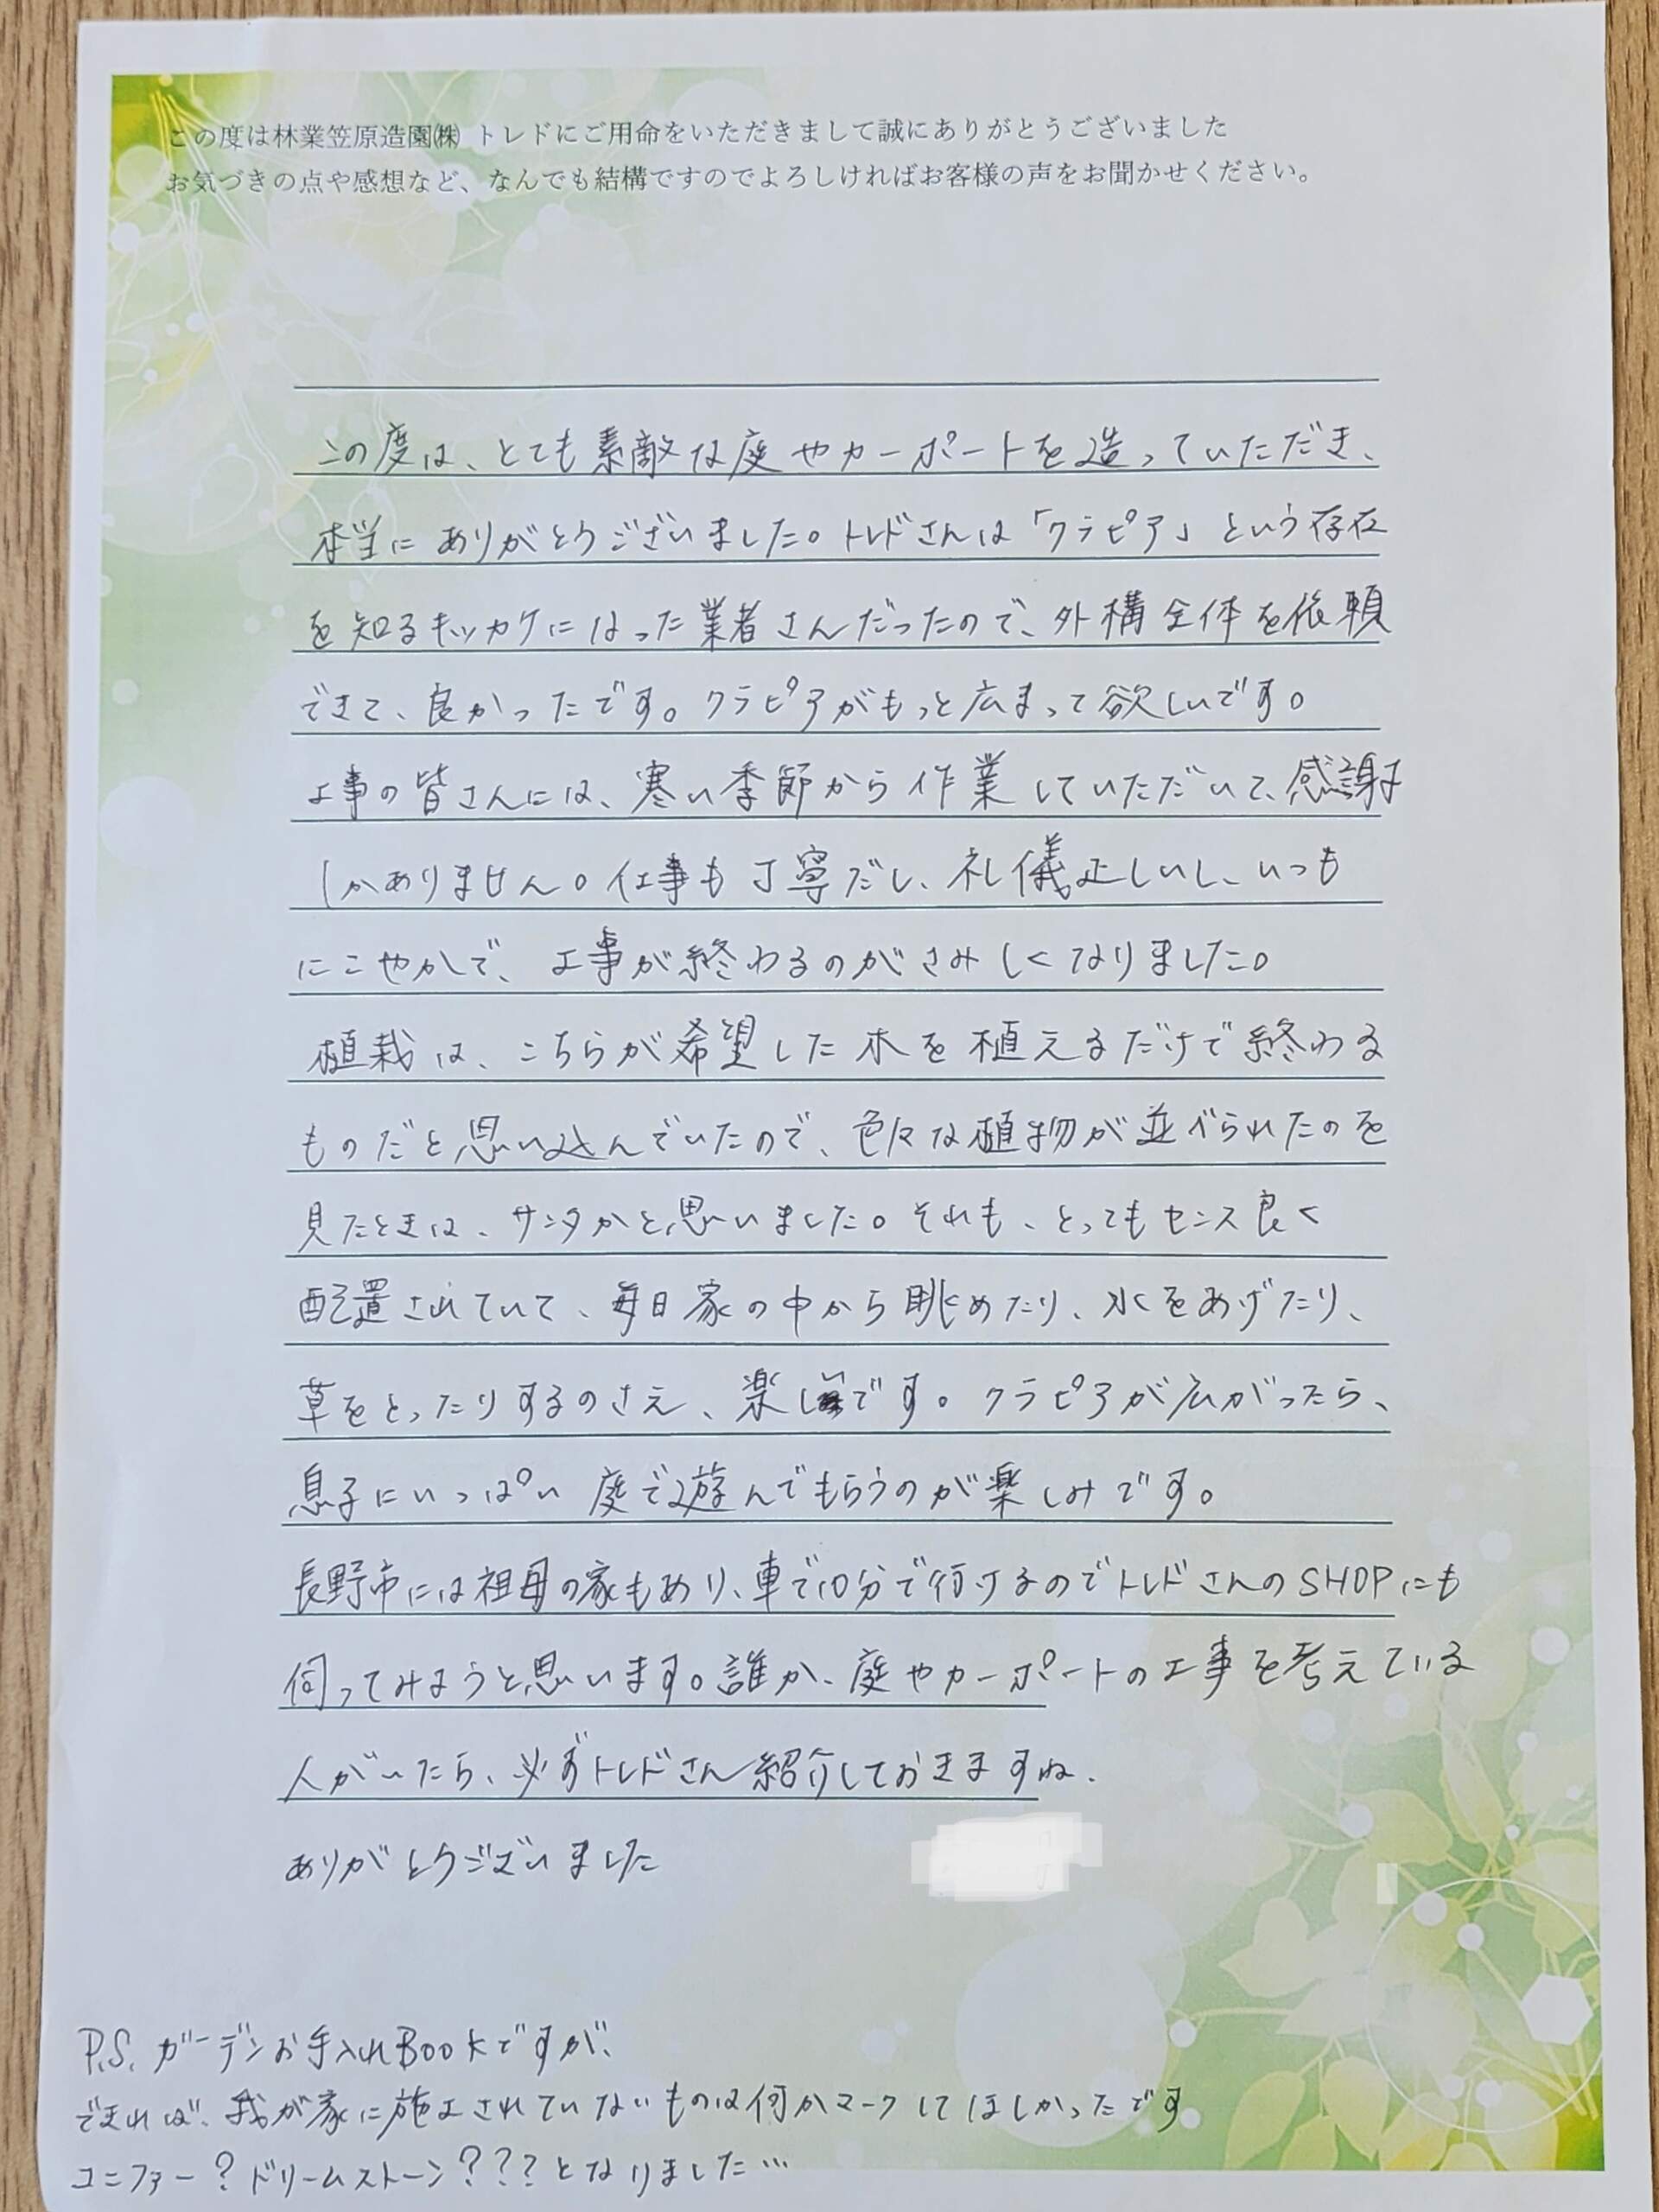 この度は林業笠原造園㈱ トレドにご用命をいただきまして誠にありがとうございました
お気づきの点や感想など、なんでも結構ですのでよろしければお客様の声をお聞かせください。
この度は、とても素敵な庭やカーポートを造っていただき、
本当にありがとうございました。トレドさんは「クラピア」という存在
を知るキッカケになった業者さんだったので、外構全体を依頼
できて、良かったです。クラピアがもっと広まって欲しいです。
工事の皆さんには、寒い季節から作業していただいて、感謝
しかありません。仕事も丁寧だし、礼儀正しいし、いつも
にこやかで、工事が終わるのがさみしくなりました。
植栽は、こちらが希望した木を植えるだけで終わる
ものだと思い込んでいたので、色々な植物が並べられたのを
見たときは、サンタかと思いました。それも、とってもセンス良く
配置されていて、毎日家の中から眺めたり、水をあげたり、
草をとったりするのさえ、楽しいです。クラピアが広がったら、
息子にいっぱい庭で遊んでもらうのが楽しみです。
長野市には祖母の家もあり、車で10分で行けるのでトレドさんのSHOPにも
伺ってみようと思います。誰か、庭やカーポートの工事を考えている
人がいたら、必ずトレドさん紹介しておきますね.
ありがとうございました
P.S. ガーデンお手入れBookですが、
できれば、我が家に施工されていないものは何かマークしてほしかったです
コニファー？ドリームストーン？？？となりました…